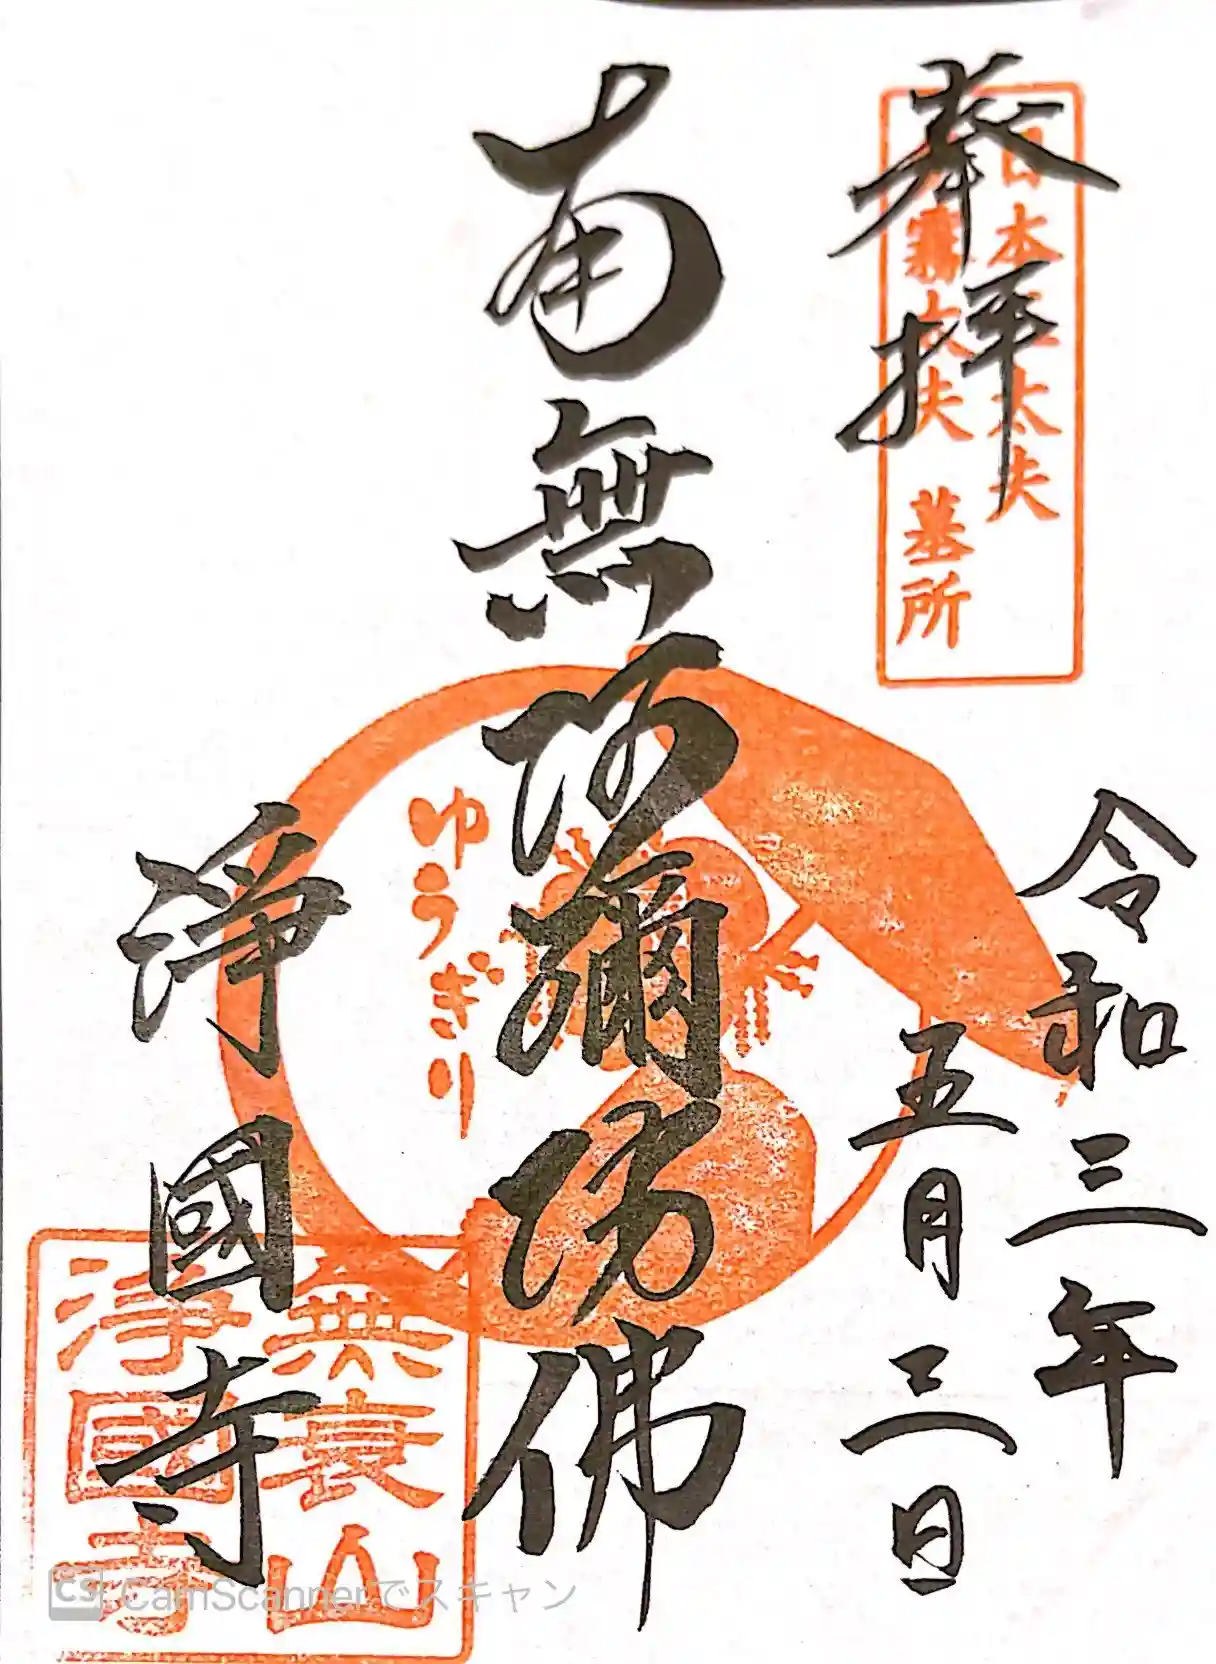 奉拝
日本三太夫
夕霧太夫 墓所
令和三年
五月三日
南無阿彌陀佛
ゆうぎり
淨國寺
無衰山
淨國寺
CS CamScannerでスキャン